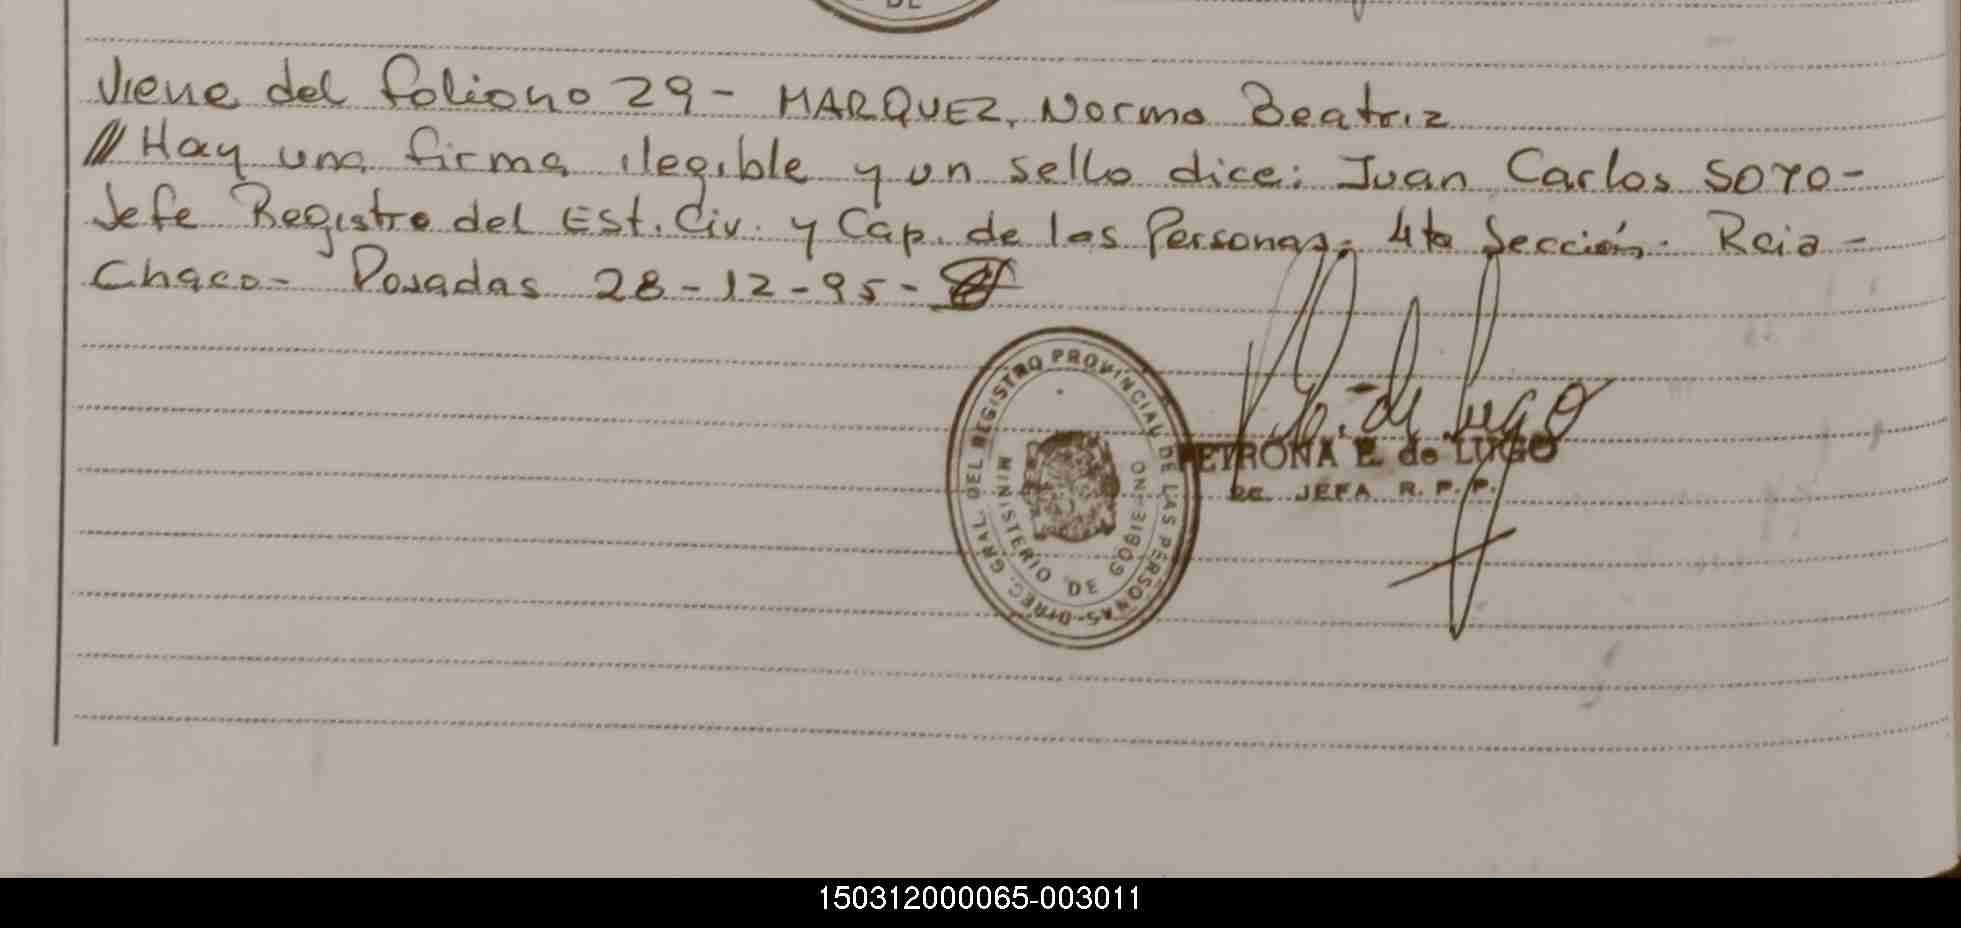 DE
Viene del folio no 29 - MARQUEZ, Norma Beatriz
/// Hay una firma ilegible y un sello dice: Juan Carlos SOTO-
Jefe Registro del Est. Civ. y Cap. de las Personas, 4ta Sección. Rcia -
Chaco - Posadas 28-12-95-
DIREC. GRAL. DEL REGISTRO PROVINCIAL DE LAS PERSONAS
MINISTERIO DE GOBIERNO
de Lugo
PETRONA E. de LUGO
JEFA R. P. P.
150312000065-003011